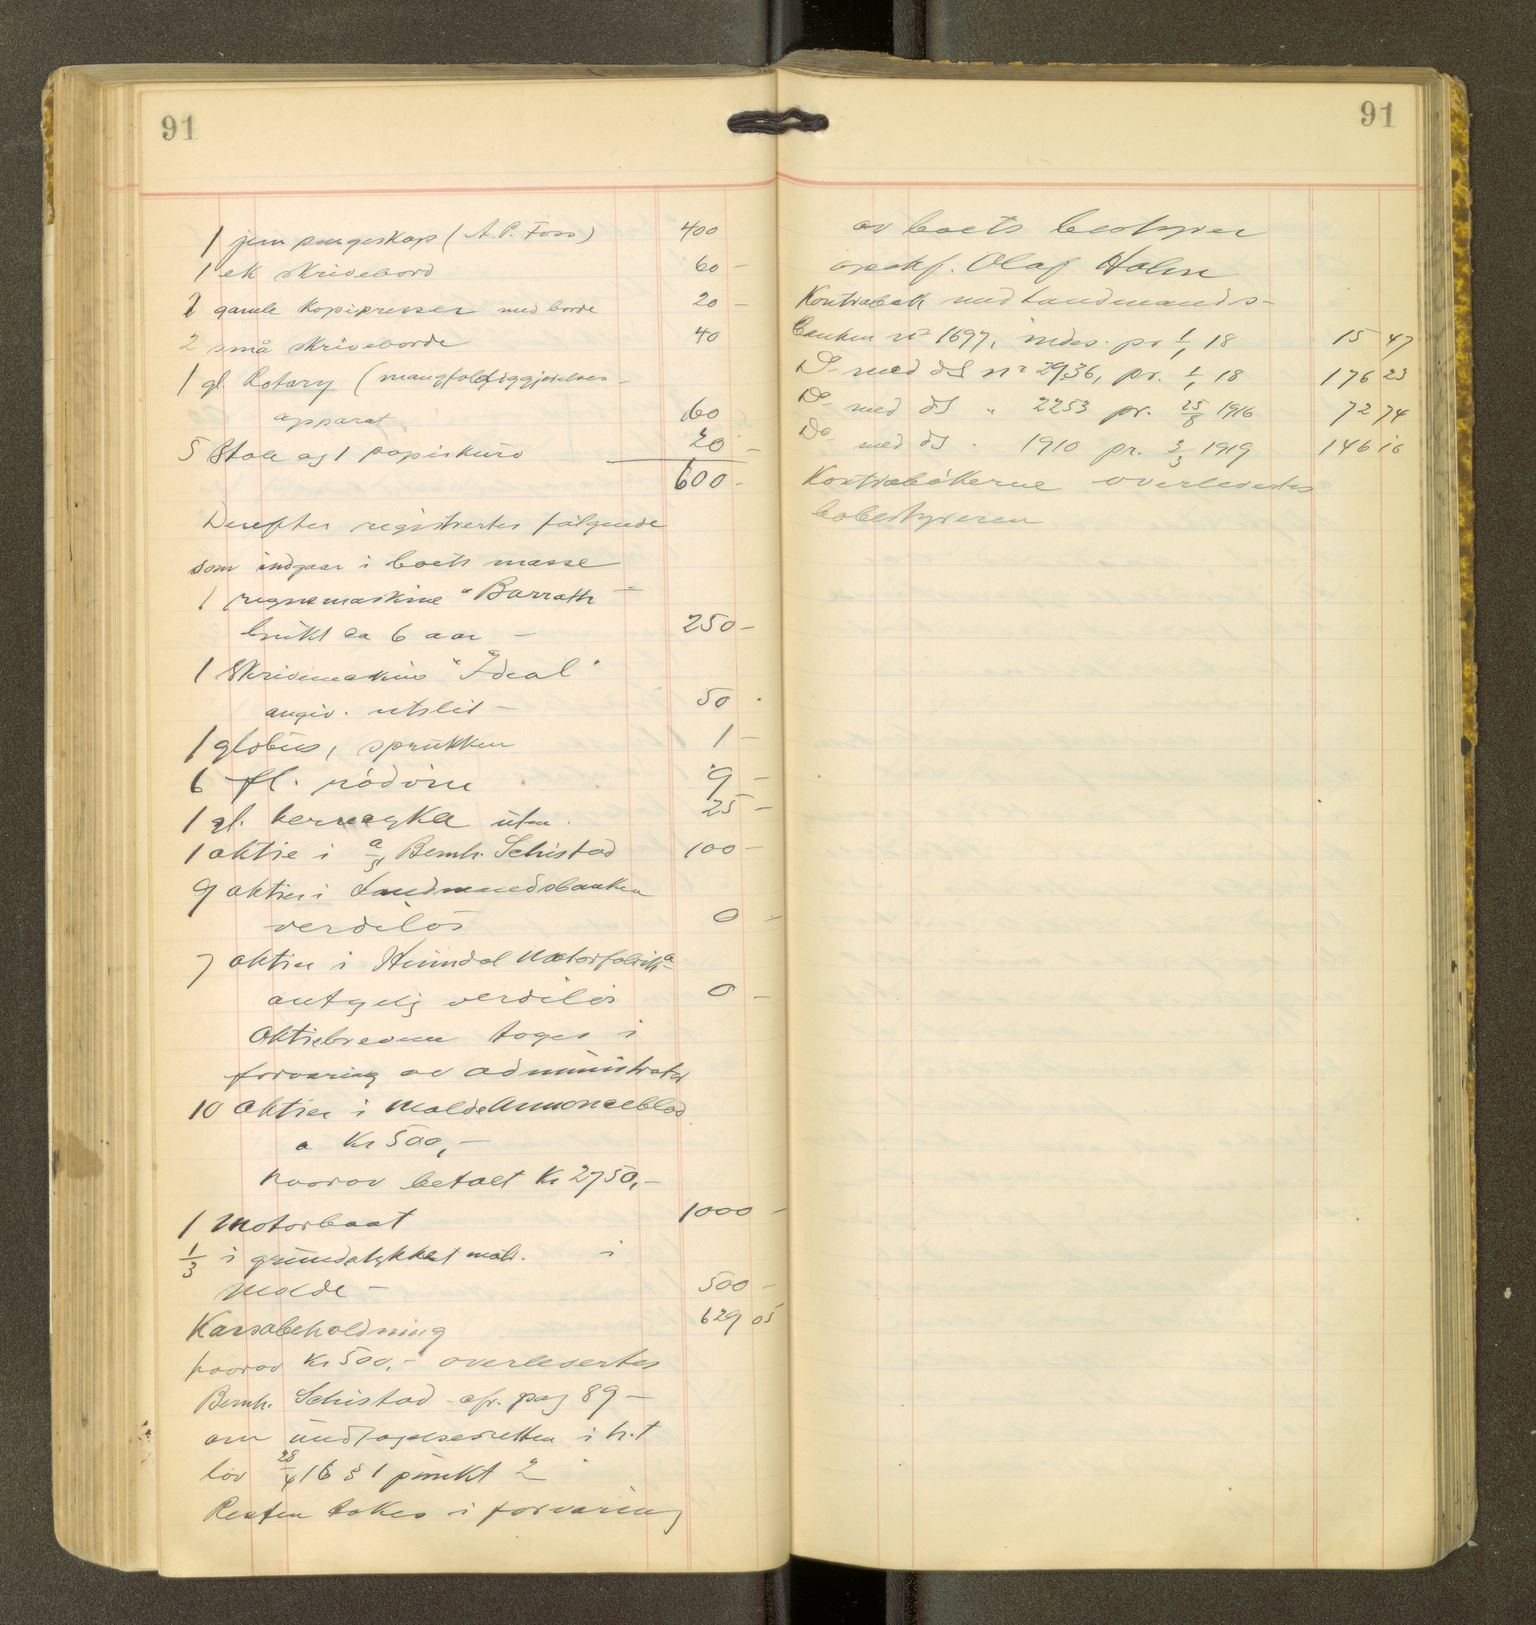 91
1 jern pengeskap (A.P. Foss) 400
1 ek skrivebord 60 -
2 gamle kopipresser med borde 20 -
2 små skriveborde 40
1 gl. Rotary (mangfoldiggjørelses-
apparat 60
5 Stole og 1 papirkurv 20 -
600 -
Derefter registrertes følgende
som indgaar i boets masse
1 regnemaskine "Barrath"
brukt ca 6 aar - 250 -
1 Skrivemaskine "Ideal"
angiv. utslit - 50 -
1 globus, sprukken 1 -
6 fl. rødvin 9 -
1 gl. 25 -
1 aktie i a/s Bernh. Schistad 100 -
9 aktier i Landmandsbanken
verdiløs 0 -
7 aktier i Heimdal Motorfabrik
verdiløs 0 -
Aktiebrevene toges i
forvaring av administrator
10 aktier i Molde Annonceblad
a Kr 500,-
hvorav betalt Kr 2750,-
1 Motorbaat 1000 -
1/3 i grundstykket matr. i
Molde - 500 -
Kassabeholdning 629 05
hvorav Kr 500,- overlevertes
Bernh. Schistad cfr. pag 89 -
om undtagelsesretten i h.t
lov 28/4 16 § 1 punkt 2
Resten tokes i forvaring
91
av boets bestyrer
Olaf Holm
Kontrabok med Landmands-
banken nr 1697, indes. pr 1/1 18 15 47
Do med ds nr 2936, pr. 1/1 18 176 23
Do med ds " 2253 pr. 25/8 1916 72 74
Do med ds " 1910 pr. 3/3 1919 146 16
Kontrabøkerne overlevertes
bobestyreren